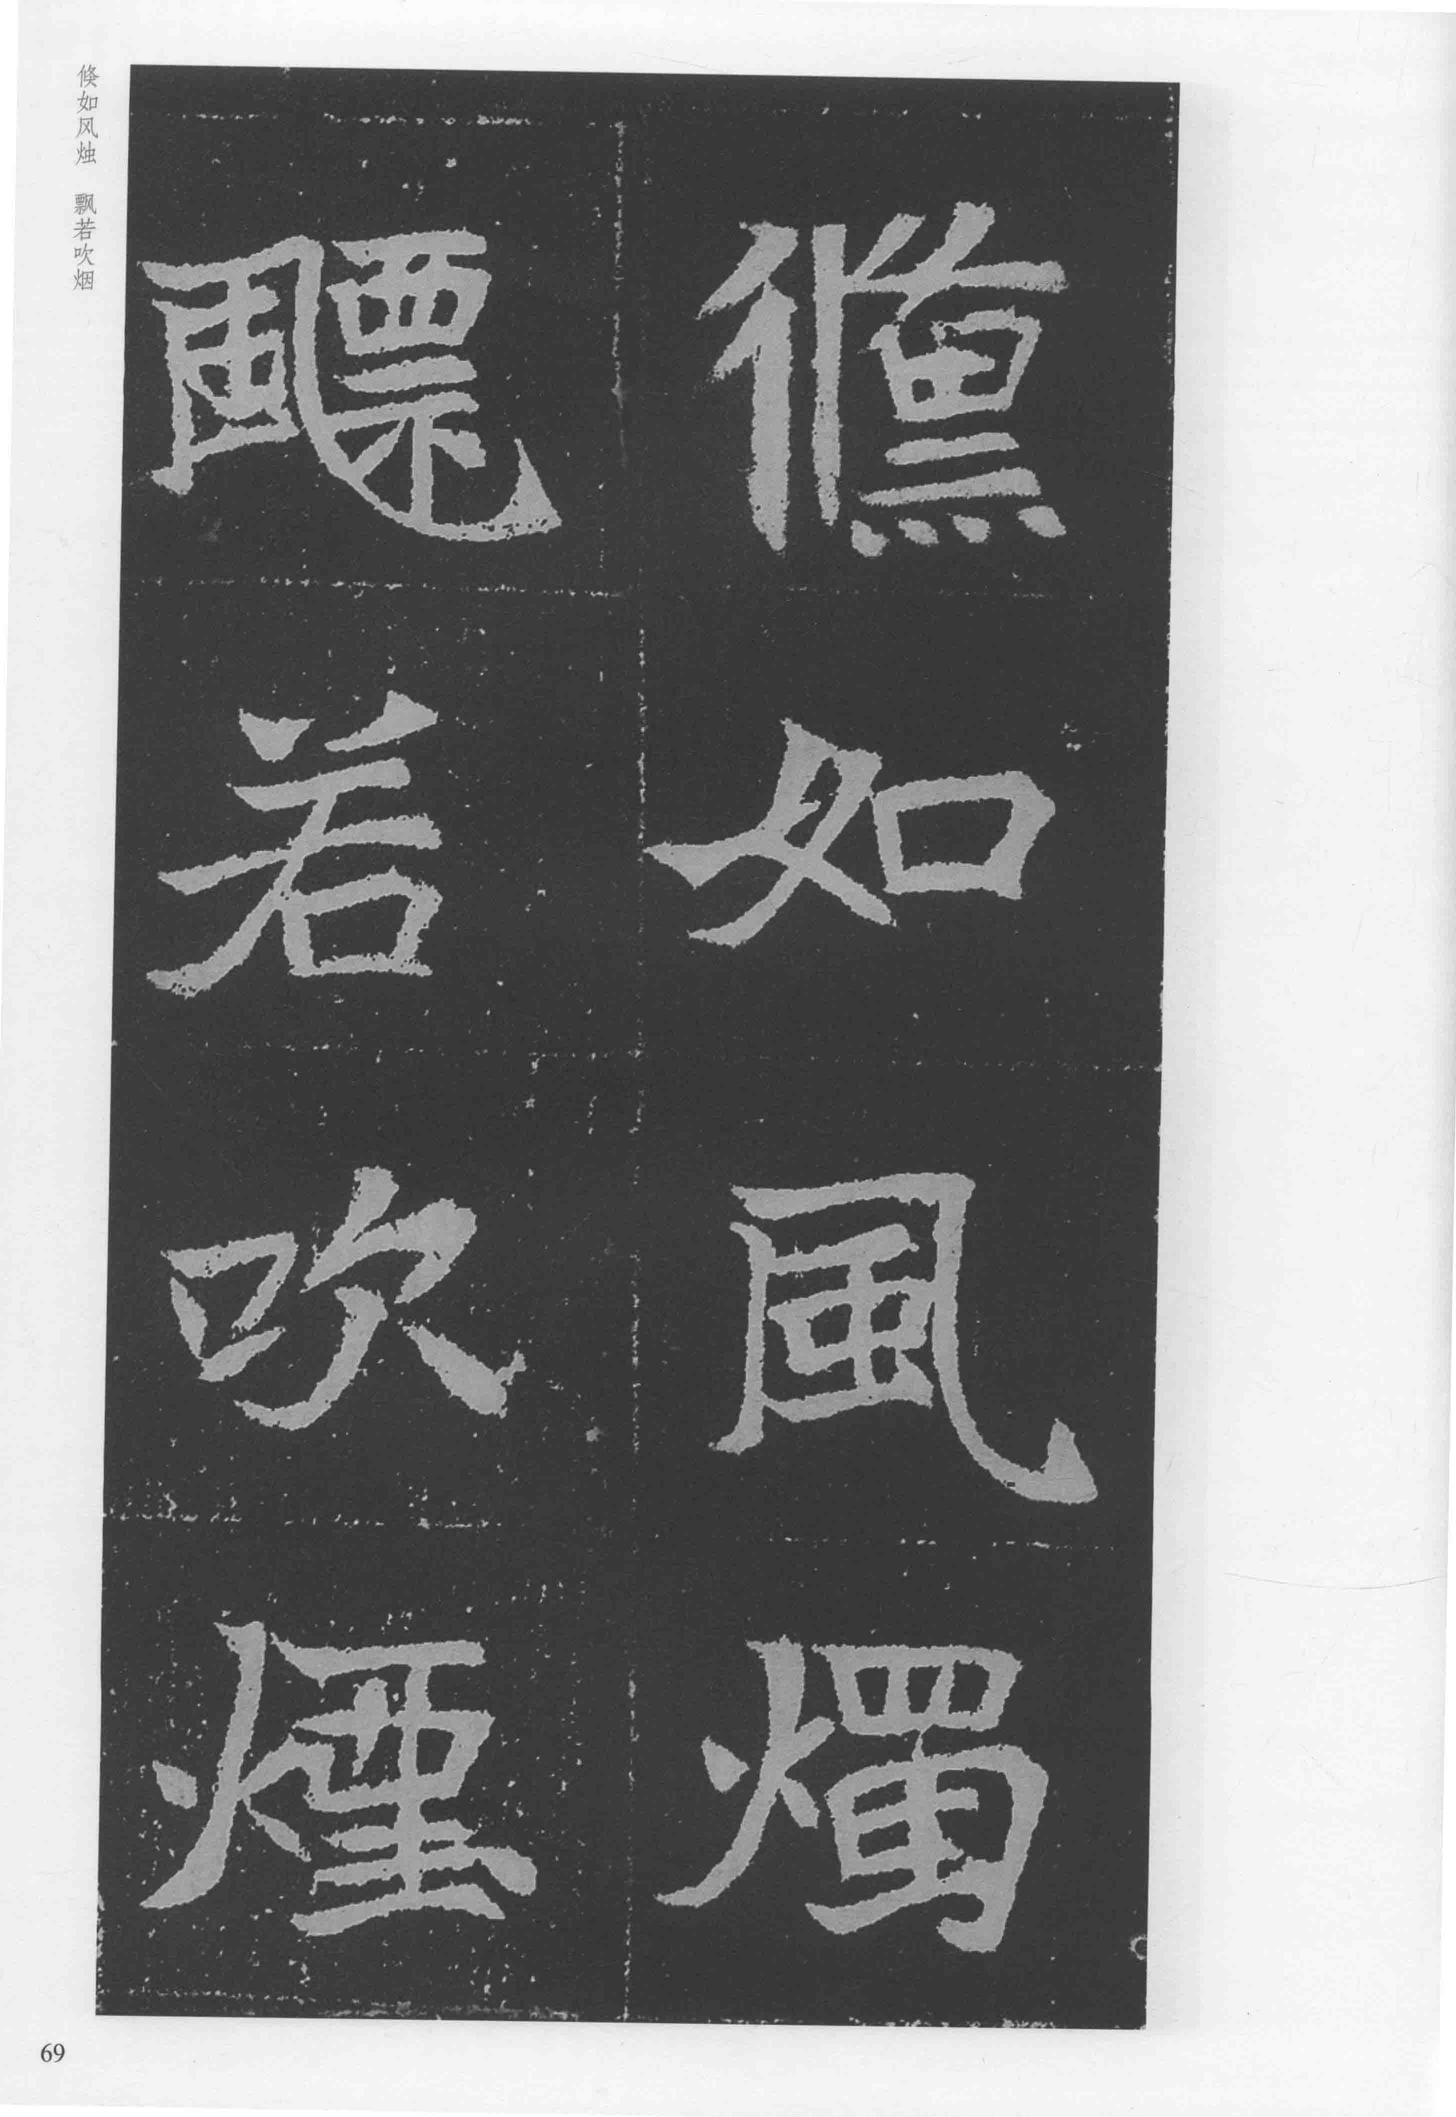 儵如風燭
飃若吹煙
倏如风烛 飘若吹烟
69